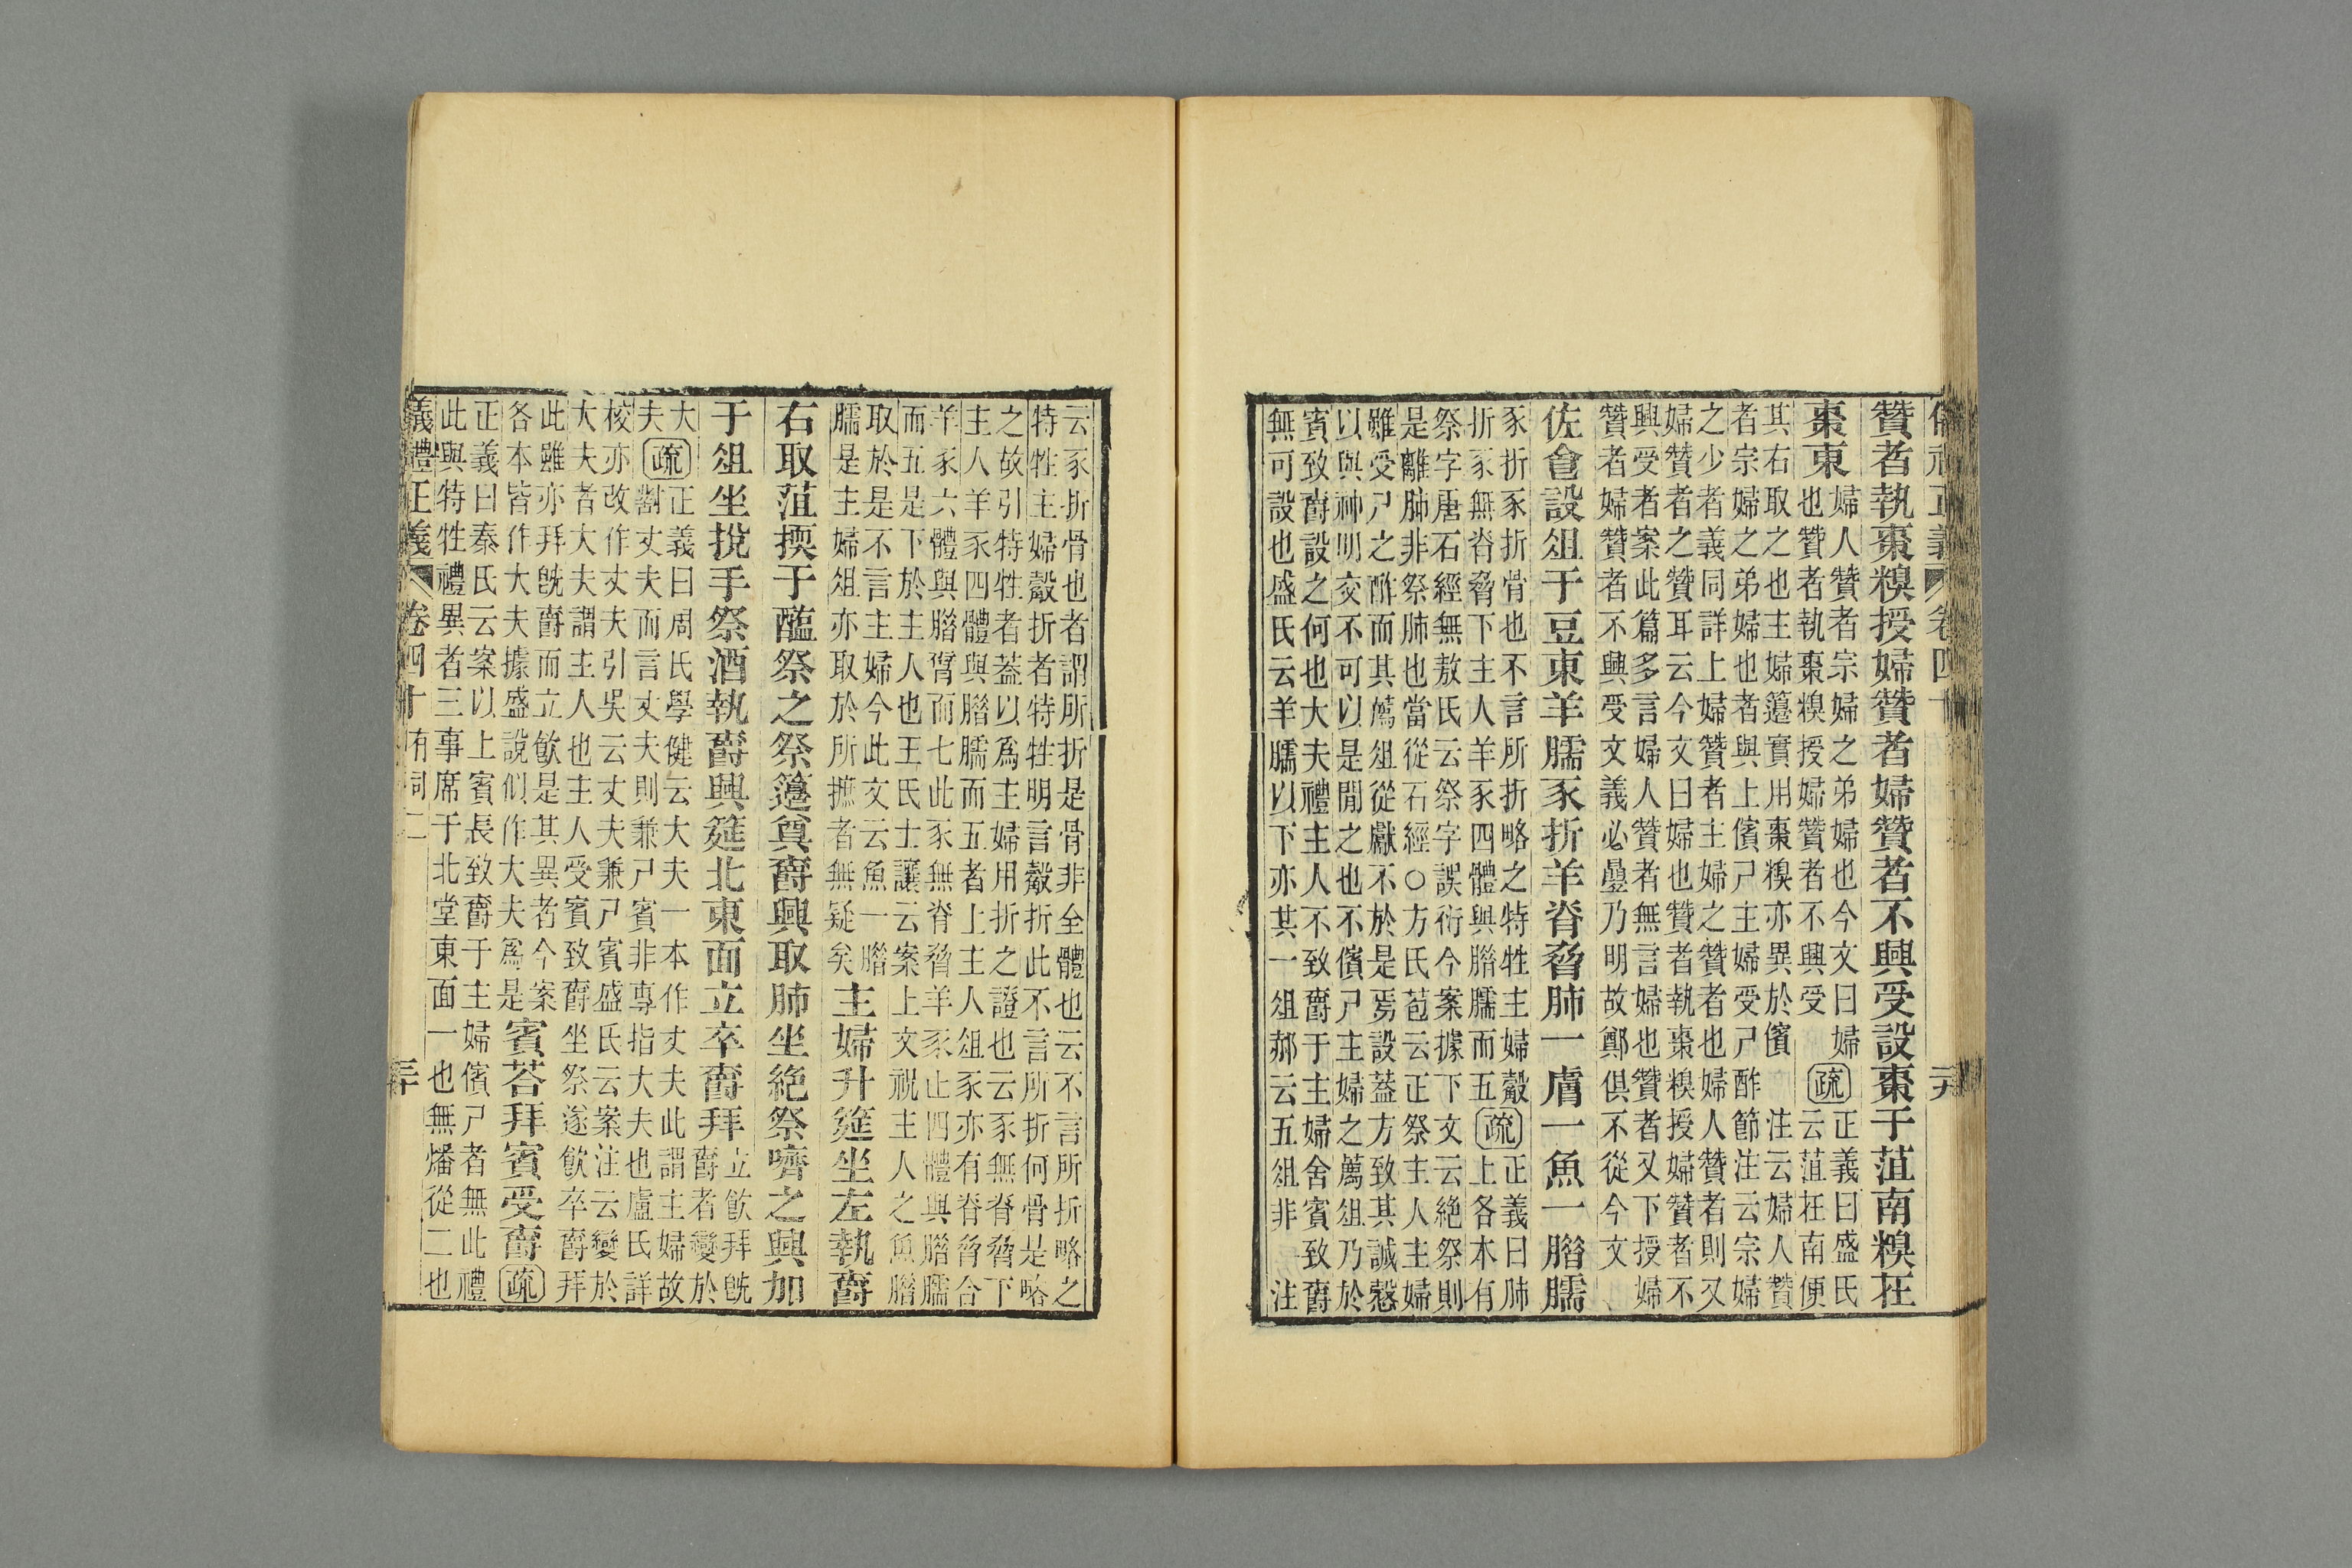 贊者執棗糗授婦贊者婦贊者不興受設棗于菹南糗在
棗東
婦人贊者宗婦之弟婦也今文曰婦
也贊者執棗糗授婦贊者不興受
疏
正義曰盛氏
云菹在南便
其右取之也主婦籩實用棗糗亦異於儐 注云婦人贊
者宗婦之弟婦也者與上儐尸主婦受尸酢節注云宗婦
之少者義同詳上婦贊者主婦之贊者也婦人贊者則又
婦贊者之贊耳云今文曰婦也贊者執棗糗授婦贊者不
興受者案此篇多言婦人贊者無言婦也贊者又下授婦
贊者婦贊者不興受文義必疊乃明故鄭俱不從今文
佐食設俎于豆東羊臑豕折羊脊脅肺一膚一魚一腊臑
豕折豕折骨也不言所折略之特牲主婦觳
折豕無脊脅下主人羊豕四體與腊臑而五
疏
正義曰肺
上各本有
祭字唐石經無敖氏云祭字誤衍今案據下文云絕祭則
是離肺非祭肺也當從石經○方氏苞云正祭主人主婦
雖受尸之酢而其薦俎從獻不於是焉設蓋方致其誠愨
以與神明交不可以是閒之也不儐尸主婦之薦俎乃於
賓致爵設之何也大夫禮主人不致爵于主婦舍賓致爵
無可設也盛氏云羊臑以下亦其一俎郝云五俎非 注
云豕折骨也者謂所折是骨非全體也云不言所折略之
特牲主婦觳折者特牲明言觳折此不言所折何骨是略
之故引特牲者蓋以爲主婦用折之證也云豕無脊脅下
主人羊豕四體與腊臑而五者上主人俎豕亦有脊脅合
羊豕六體與腊臂而七此豕無脊脅羊豕止四體與腊臑
而五是下於主人也王氏士讓云案上文祝主人之魚腊
取於是不言主婦今此文云魚一腊
臑是主婦俎亦取於所摭者無疑矣
主婦升筵坐左執爵
右取菹擩于醢祭之祭籩奠爵興取肺坐絕祭嚌之興加
于俎坐挩手祭酒執爵興筵北東面立卒爵拜
立飲拜既
爵者變於
大
夫
疏
正義曰周氏學健云大夫一本作丈夫此謂主婦故
對丈夫而言丈夫則兼尸賓非專指大夫也盧氏詳
校亦改作丈夫引吳云丈夫兼尸賓盛氏云案注云變於
大夫者大夫謂主人也主人受賓致爵坐祭遂飲卒爵拜
此雖亦拜既爵而立飲是其異者今案
各本皆作大夫據盛說似作大夫爲是
賓荅拜賓受爵
疏
正義曰秦氏云案以上賓長致爵于主婦儐尸者無此禮
此與特牲禮異者三事席于北堂東面一也無燔從二也
儀禮正義 卷四十 有司二 三十